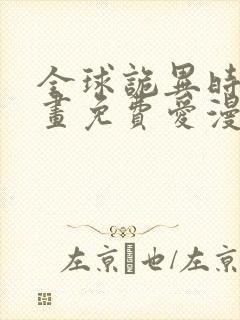 全球詭異時
畫免費愛漫
左京也/左京